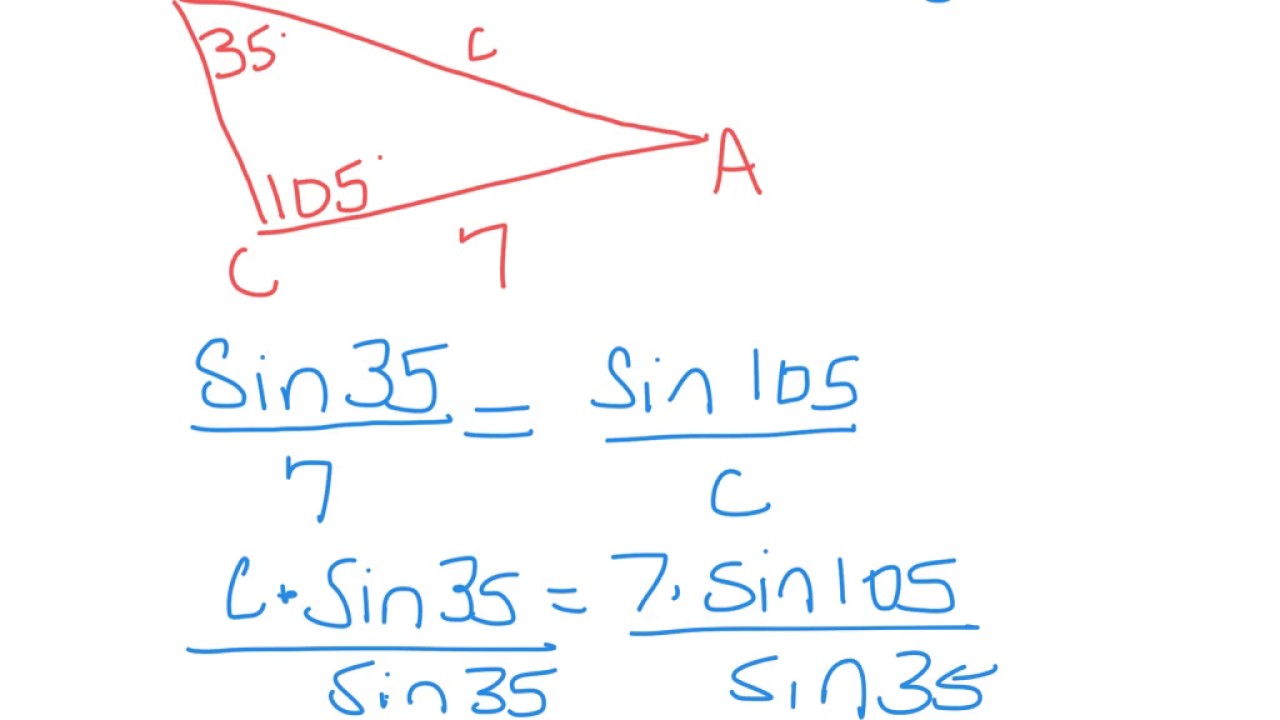 35°
c
105°
A
C
7
Sin 35 = Sin 105
7 c
C • Sin 35 = 7 • Sin 105
Sin 35 Sin 35